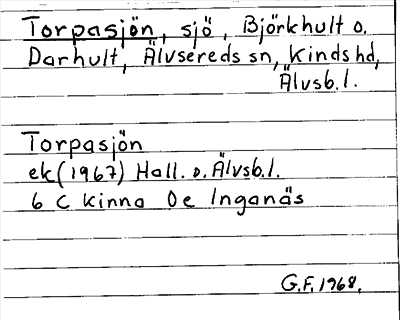 Torpasjön, sjö, Björkhult o.
Darhult, Älvsereds sn, Kinds hd,
Älvsb. l.
Torpasjön
ek (1967) Hall. o. Älvsb. l.
6 C Kinna 0e Inganäs
G.F. 1968.